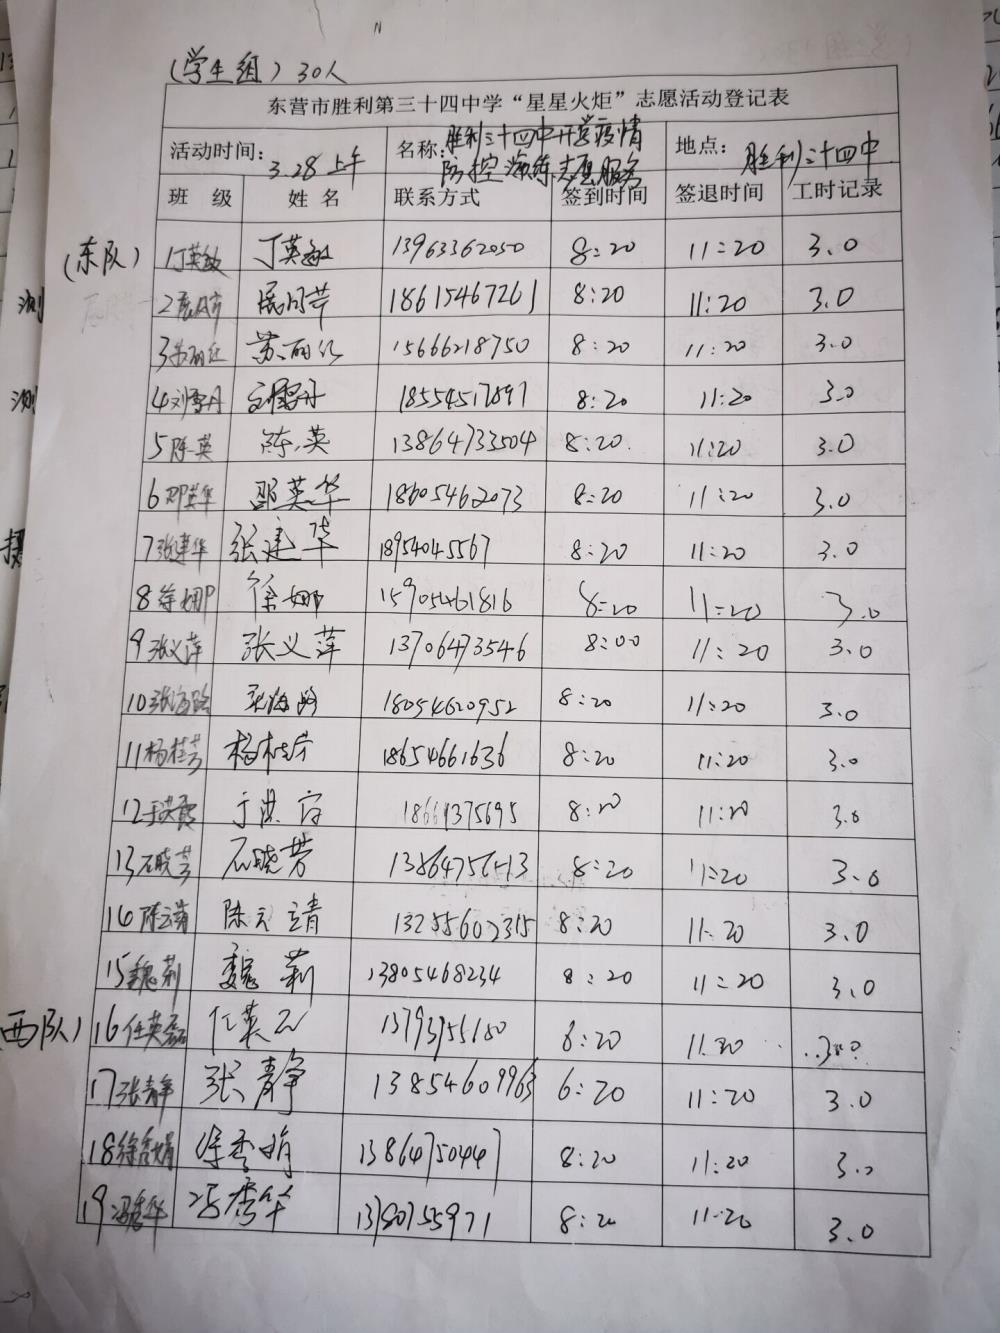 (学生组) 30人
东营市胜利第三十四中学“星星火炬”志愿活动登记表
活动时间: 3.28上午 名称: 胜利三十四中开学疫情防控演练志愿服务 地点: 胜利三十四中
班 级 姓 名 联系方式 签到时间 签退时间 工时记录
(东队) 1丁英敏 丁英敏 13963362050 8:20 11:20 3.0
2 18615467261 8:20 11:20 3.0
3苏丽红 苏丽红 15666218750 8:20 11:20 3.0
4刘雪丹 刘雪丹 18554517897 8:20 11:20 3.0
5陈英 陈英 13864733504 8:20 11:20 3.0
6邵英华 邵英华 18605462073 8:20 11:20 3.0
7张建华 张建华 18954045567 8:20 11:20 3.0
8徐娜 徐娜 15905461816 8:20 11:20 3.0
9张义萍 张义萍 13706473546 8:00 11:20 3.0
10张海 张海 18054620952 8:20 11:20 3.0
11杨桂芳 杨桂芳 18654661636 8:20 11:20 3.0
12于洪霞 于洪霞 8:20 11:20 3.0
13石晓芳 石晓芳 8:20 11:20 3.0
14陈云靖 陈云靖 13255602315 8:20 11:20 3.0
15魏莉 魏莉 13805468234 8:20 11:20 3.0
(西队) 16任英磊 任英磊 8:20 11:20 3.0
17张静 张静 13854609963 6:20 11:20 3.0
18徐秀娟 徐秀娟 13864750447 8:20 11:20 3.0
19冯秀华 冯秀华 8:20 11:20 3.0